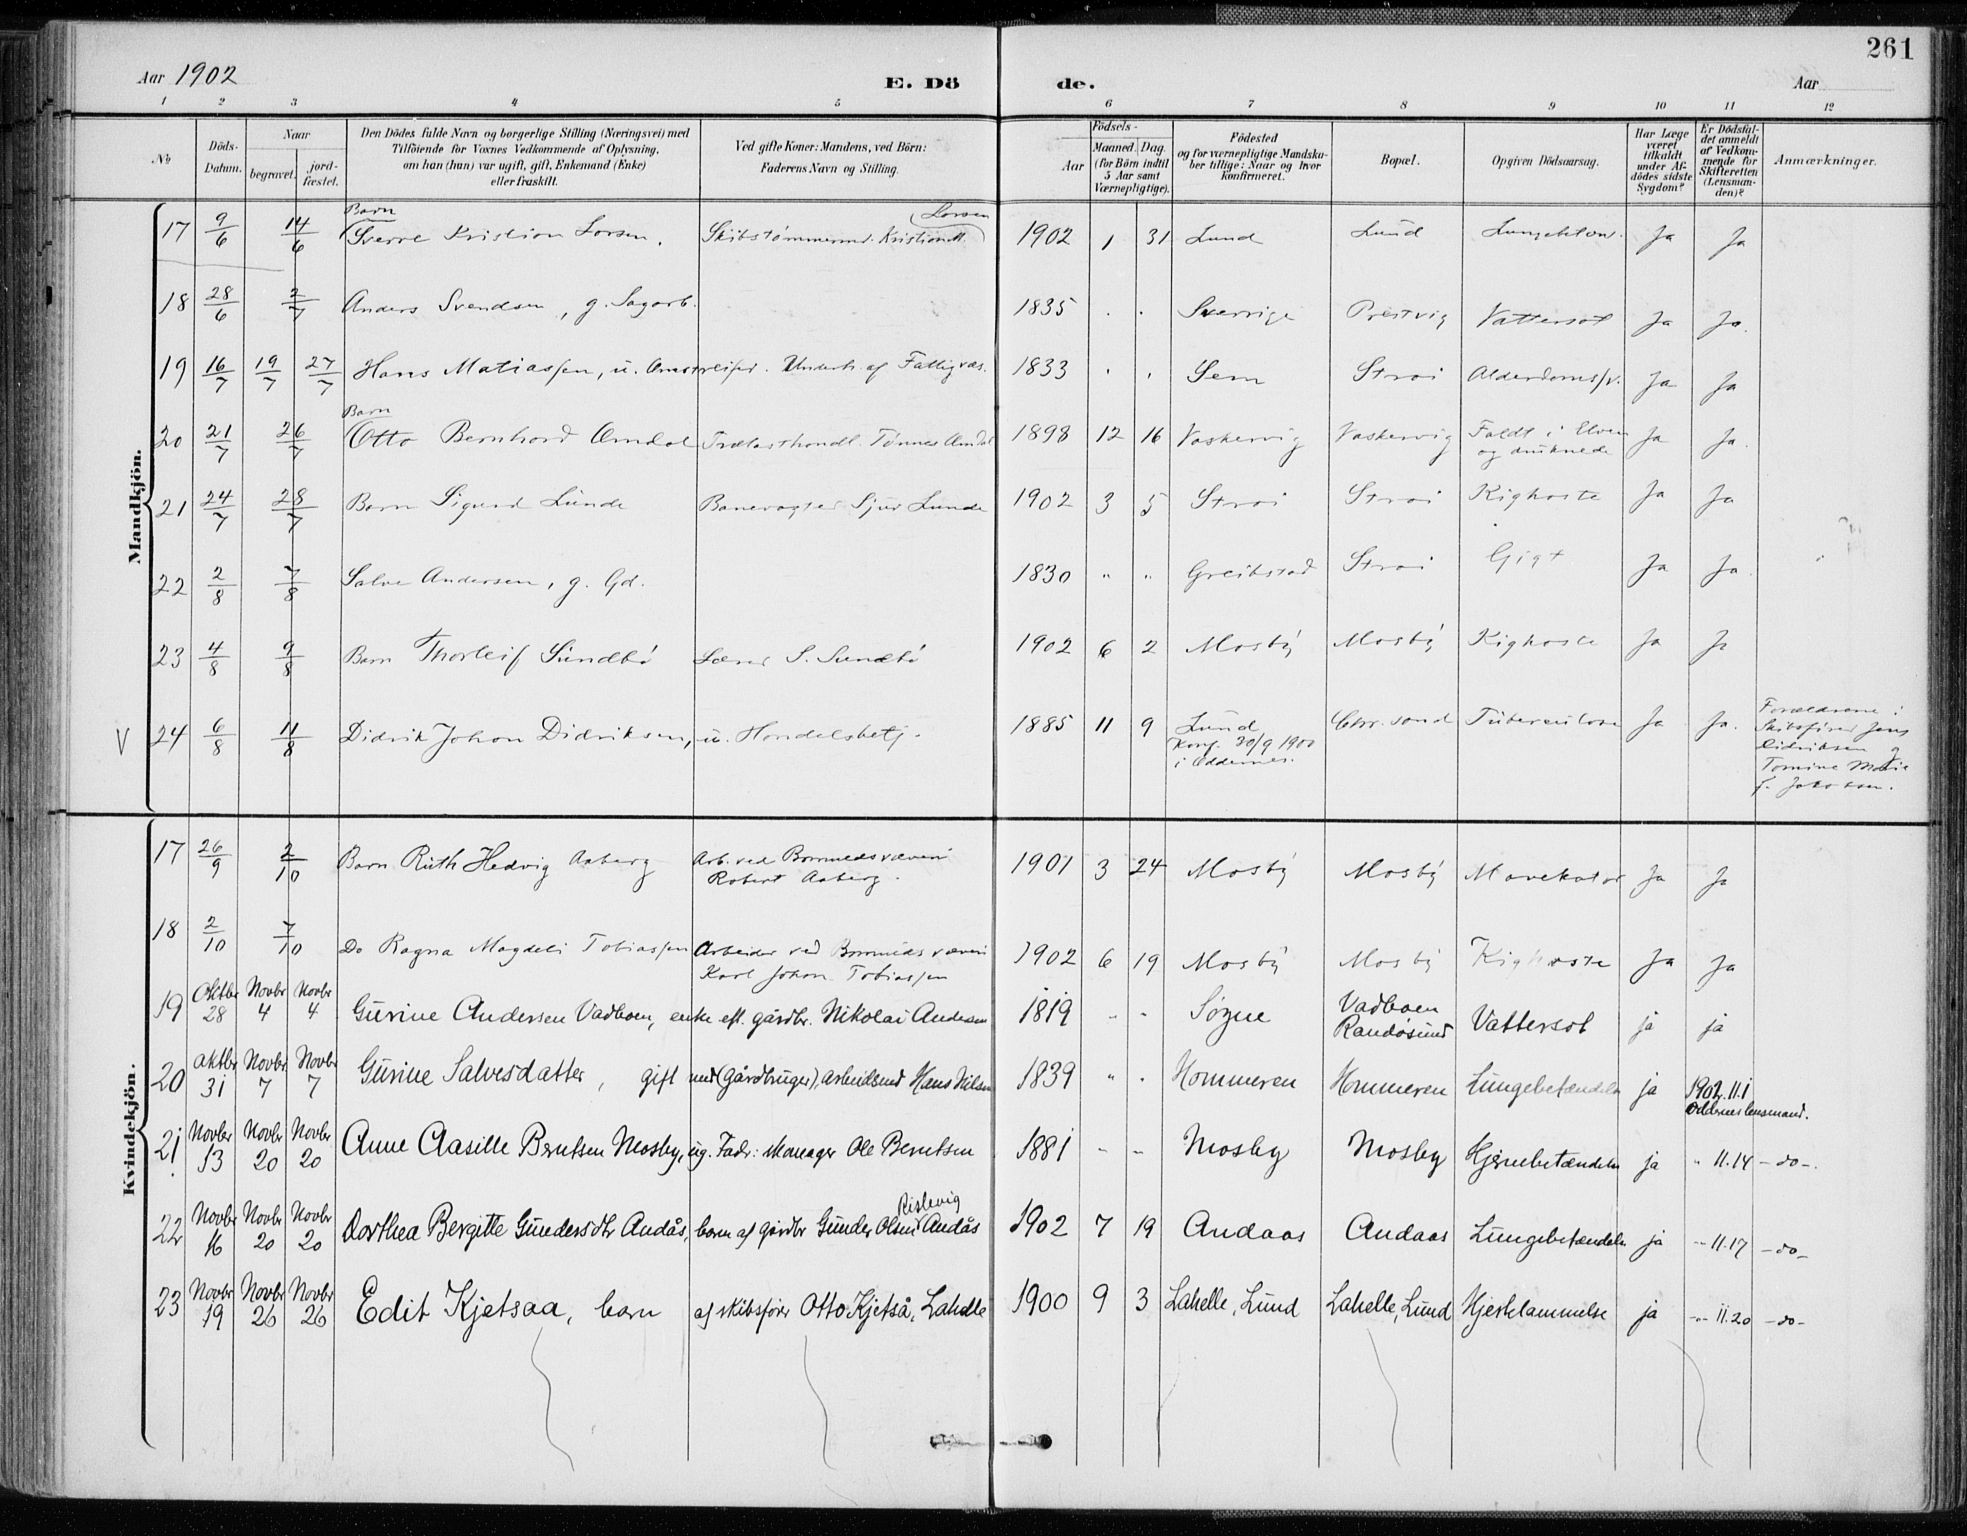 261
Aar 1902 E. Dö de. Aar
1 2 3 4 5 6 7 8 9 10 11 12
№
Döds-Datum.
Naar
begravet.
jord-fæstet.
Den Dödes fulde Navn og borgerlige Stilling (Næringsvei) med
Tilföiende for Voxnes Vedkommende af Oplysning,
om han (hun) var ugift, gift, Enkemand (Enke)
eller fraskilt.
Ved gifte Koner: Mandens, ved Börn:
Faderens Navn og Stilling.
Födsels-
Aar
Maaned. Dag.
(for Börn indtil
5 Aar samt
Værnepligtige).
Födested
og for værnepligtige Mandska-
ber tillige: Naar og hvor
Konfirmeret.
Bopæl.
Opgiven Dödsaarsag.
Har Læge
været
tilkaldt
under Af-
dödes sidste
Sygdom?
Er Dödsfal-
det anmeldt
af Vedkom-
mende for
Skifteretten
(Lensman-
den)?
Anmærkninger.
Mandkjön.
Barn Larsen
17 9/6 14/6 Sverre Kristian Larsen, Skibstømmermd. Kristian 1902 1 31 Lund Lund Ja Ja
18 28/6 2/7 Anders Svendsen, g. Sagarb. 1835 . . Sverrige Prestvig Vattersot Ja Ja.
19 16/7 19/7 27/7 Hans Matiassen, u. Omstreifer. Underh. af Fattigvæs. 1833 . . Sem Strai Alderdomssv. Ja Ja
Barn
20 21/7 26/7 Otto Bernhard Omdal Trælasthandl. Tønnes Omdal 1898 12 16 Vaskervig Vaskervig Faldt i Elven Ja Ja.
og druknede
21 24/7 28/7 Barn Sigurd Lunde Banevogter Sjur Lunde 1902 3 5 Strai Strai Kighoste Ja Ja
22 2/8 7/8 Salve Andersen, g. Gd. 1830 " " Greibstad Strai Gigt Ja Ja
23 4/8 9/8 Barn Thorleif Sundbø Lærer S. Sundbø 1902 6 2 Mosby Mosby Kighoste Ja Ja
V 24 6/8 11/8 Didrik Johan Didriksen, u. Handelsbetj. 1885 11 9 Lund Chr.sand Tuberculose Ja Ja.
Konf. 30/9 1900
i Oddernes.
Forældrene:
Skibsfører Jens
Didriksen og
Tomine Marie
f. Jakobsen.
Kvindekjön.
17 26/9 2/10 Barn Ruth Hedvig Aaberg Arb. ved Bomuldsvæveri 1901 3 24 Mosby Mosby Mavekatar Ja Ja
Robert Aaberg.
18 2/10 7/10 Do Ragna Magdeli Tobiassen Arbeider ved Bomuldsvæveri 1902 6 19 Mosby Mosby Kighoste Ja Ja
Karl Johan Tobiassen
19 Oktbr 28 Novbr 4 Novbr 4 Gurine Andersen Vadboen, enke eft. gårdbr. Nikolai Andersen 1819 - - Søgne Vadboen Randøsund Vattersot ja ja
20 Oktbr 31 Novbr 7 Novbr 7 Gurine Salvesdatter, gift med (gårdbruger), arbeidsmd Hans Nilsen 1839 " . Hommeren Hommeren Lungebetændelse ja 1902.11.1
Oddernes lensmand.
21 Novbr 13 Novbr 20 Novbr 20 Anne Aasille Berntsen Mosby, ug. Fadr: Manager Ole Berntsen 1881 - - Mosby Mosby Hjernebetændelse ja " 11.14 -do-.
Rislevig
22 Novbr 16 Novbr 20 Novbr 20 Dorthea Bergitte Gundersdtr Andås, barn af gårdbr Gunder Olsen Andås 1902 7 19 Andaas Andaas Lungebetændelse ja -"- 11.17 -do-
23 Novbr 19 Novbr 26 Novbr 26 Edit Kjetsaa, barn af skibsfører Otto Kjetså, Lahelle 1900 9 3 Lahelle, Lund Lahelle, Lund Hjertelammelse ja -"- 11.20 -do-